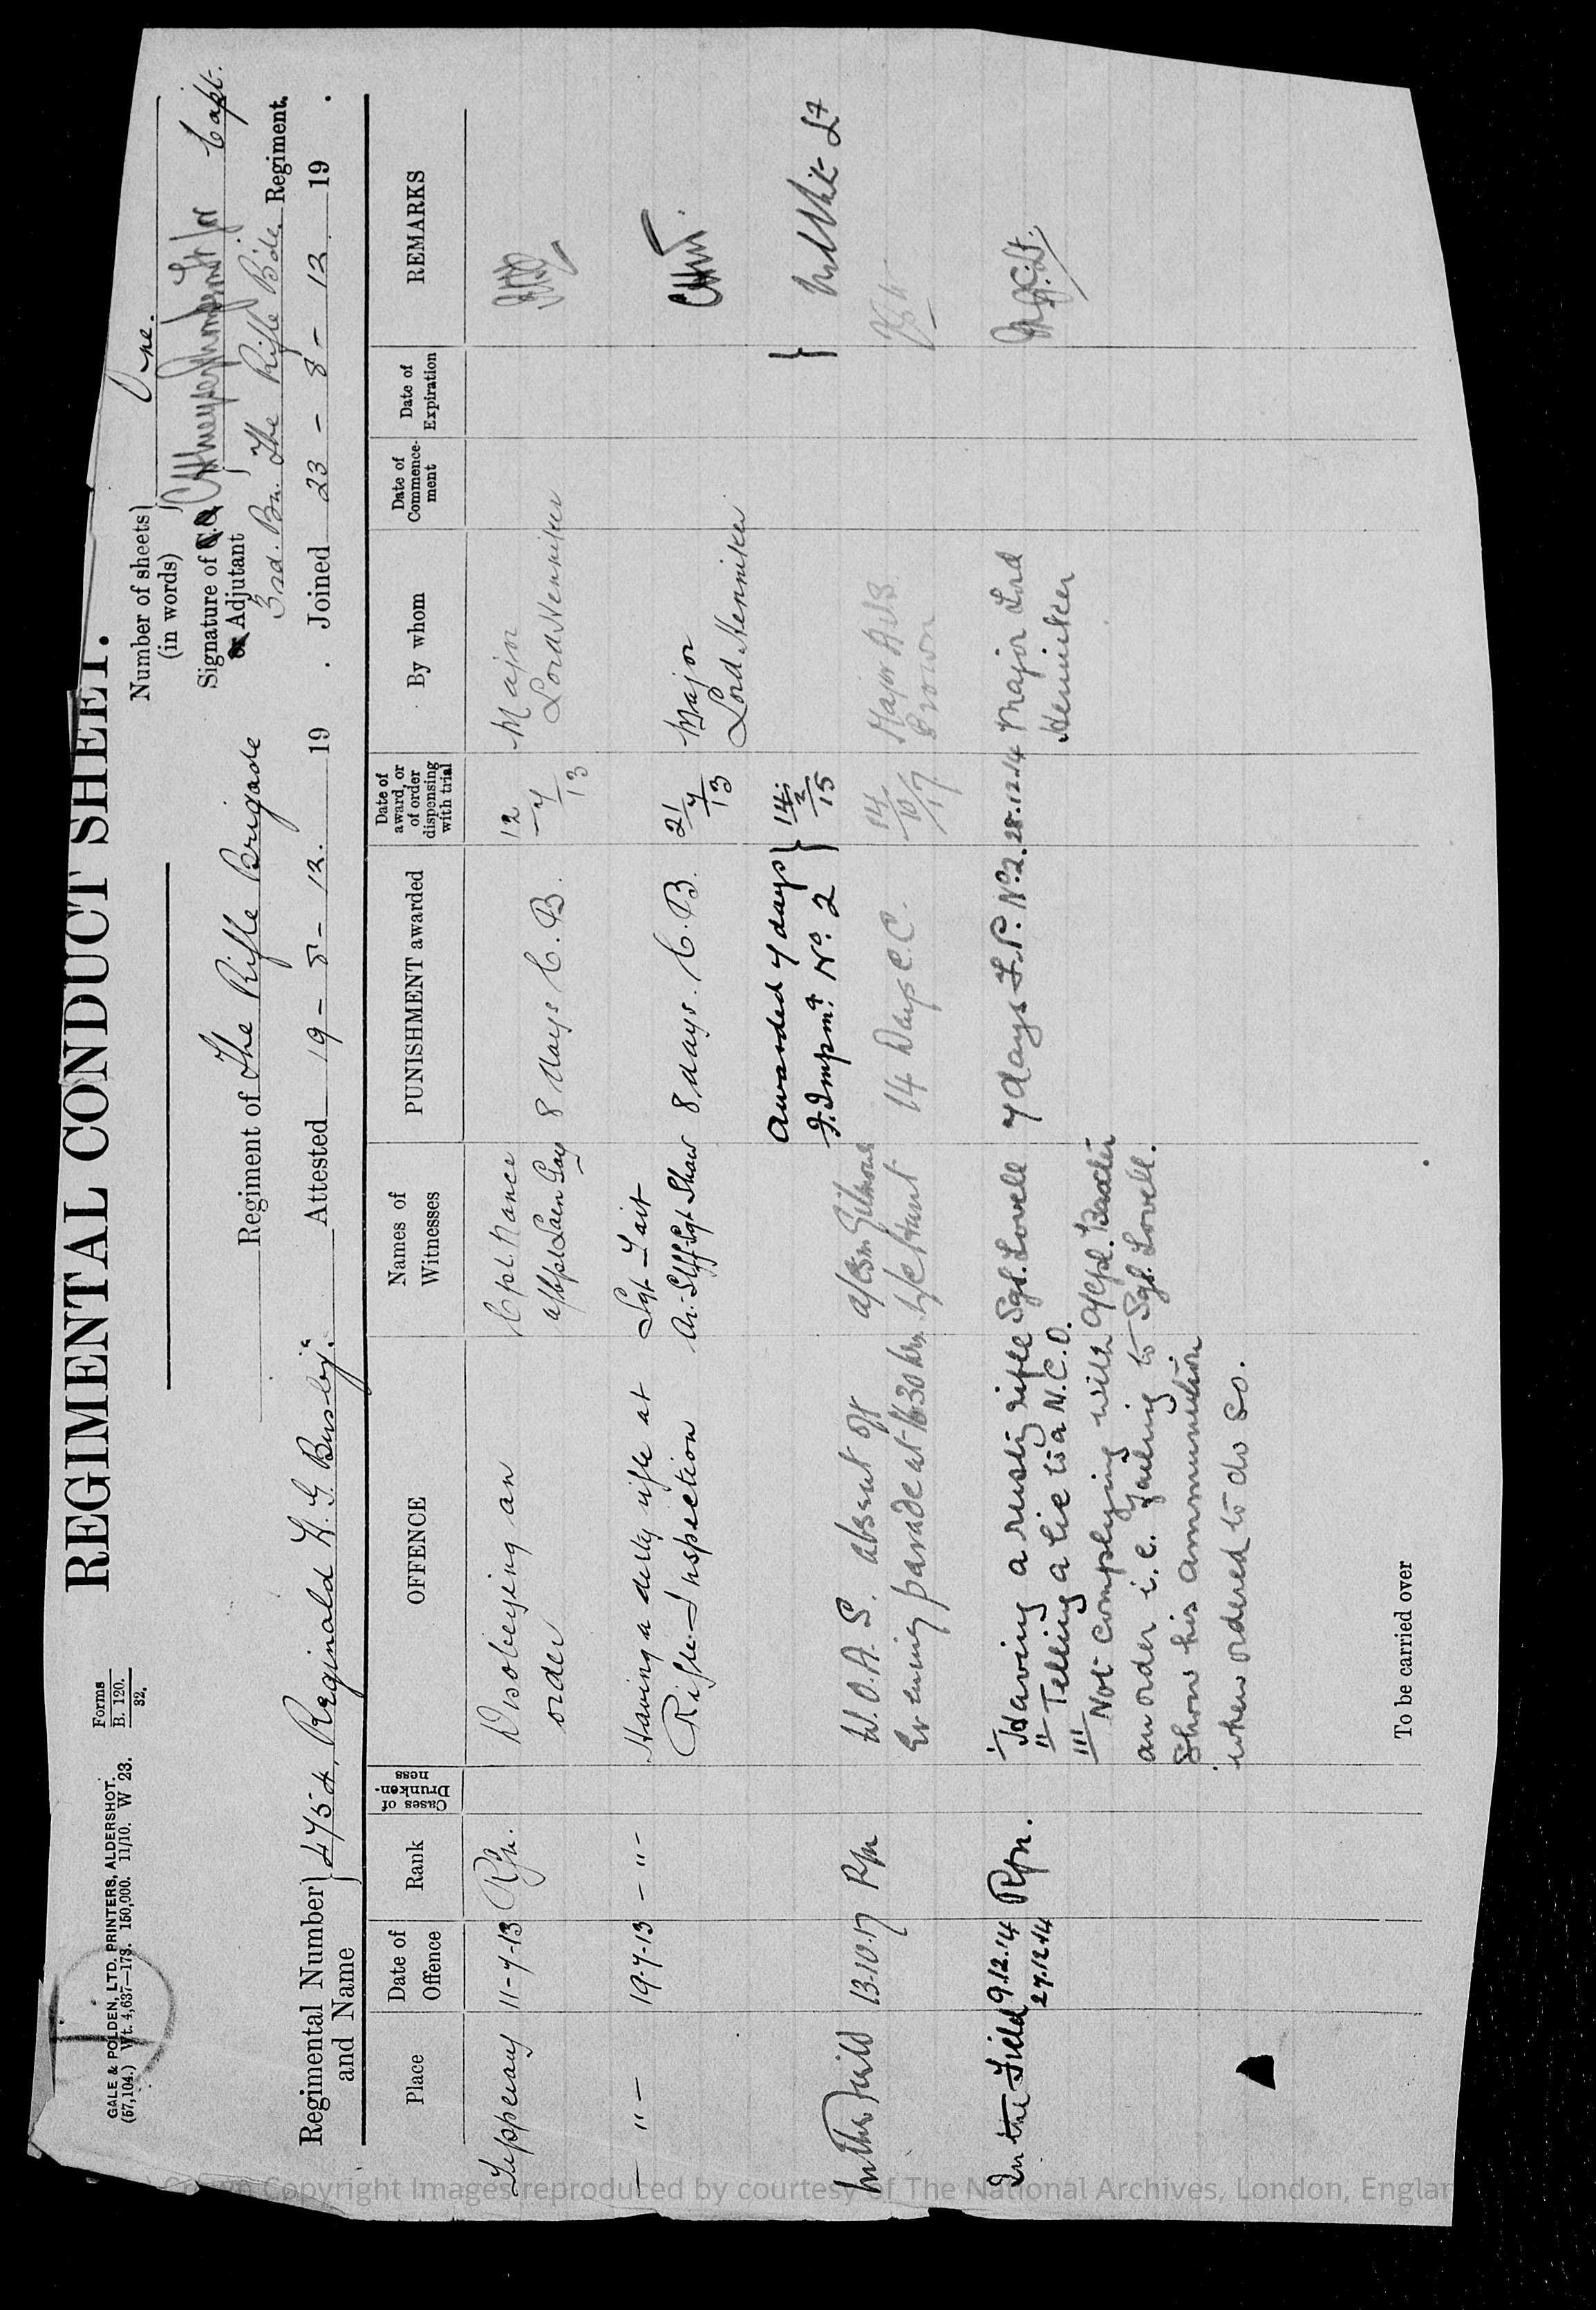 GALE & POLDEN, LTD. PRINTERS, ALDERSHOT.
(57,104.) Wt. 4,637—173. 150,000. 11/10. W 23.
Forms
B. 120.
32.
REGIMENTAL CONDUCT SHEET.
Number of sheets
(in words)
One.
Signature of C.O.
or Adjutant
for Capt.
Regiment of The Rifle Brigade
3rd. Bn. The Rifle Bde. Regiment.
Regimental Number
and Name
4754, Reginald H. G. Busby. Attested 19 - 5 - 12. 19 . Joined 23 - 8 - 12. 19 .
Place
Date of
Offence
Rank
Cases of
Drunken-
ness
OFFENCE
Names of
Witnesses
PUNISHMENT awarded
Date of
award, or
of order
dispensing
with trial
By whom
Date of
Commence-
ment
Date of
Expiration
REMARKS
Tipperary 11-7-13 Rfn. Disobeying an Cpl. Nance 8 days C. B. 12 Major
order a/Cpl 7 Lord Henniker
13
— " — 19-7-13 — " - Having a dirty rifle at Sgt Tait 21 Major
Rifle Inspection Ar: Stff-Sgt Shaw 8 days. C. B. 7 Lord Henniker
13
Awarded 7 days 14
F. Impmt. No. 2 2 Lt
15
In the Field 13.10.17 Rfn W.O.A.S. absent off a/CSM Gilmour 14 Days C.C. 14 Major
Evening parade at 16.30 hrs. L/c Hunt 10 Brown
17
In the Field 9.12.14 Rfn. I Having a rusty rifle Sgt. Lovell 7 days F.P. No. 2. 28.12.14 Major Lord
27.12.14 II Telling a lie to a N.C.O. Henniker
III Not complying with a/Cpl.
an order i.e. failing to Sgt. Lovell.
Show his ammunition
when ordered to do so.
To be carried over
Crown Copyright Images reproduced by courtesy of The National Archives, London, Englan